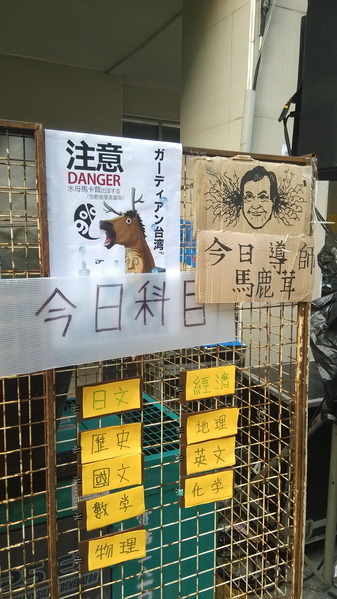 注意
DANGER
水母馬卡茸出没する
ガーディアン台湾で
今日導師
馬鹿茸
今日科目
日文
歷史
國文
數学
物理
經濟
地理
英文
化学